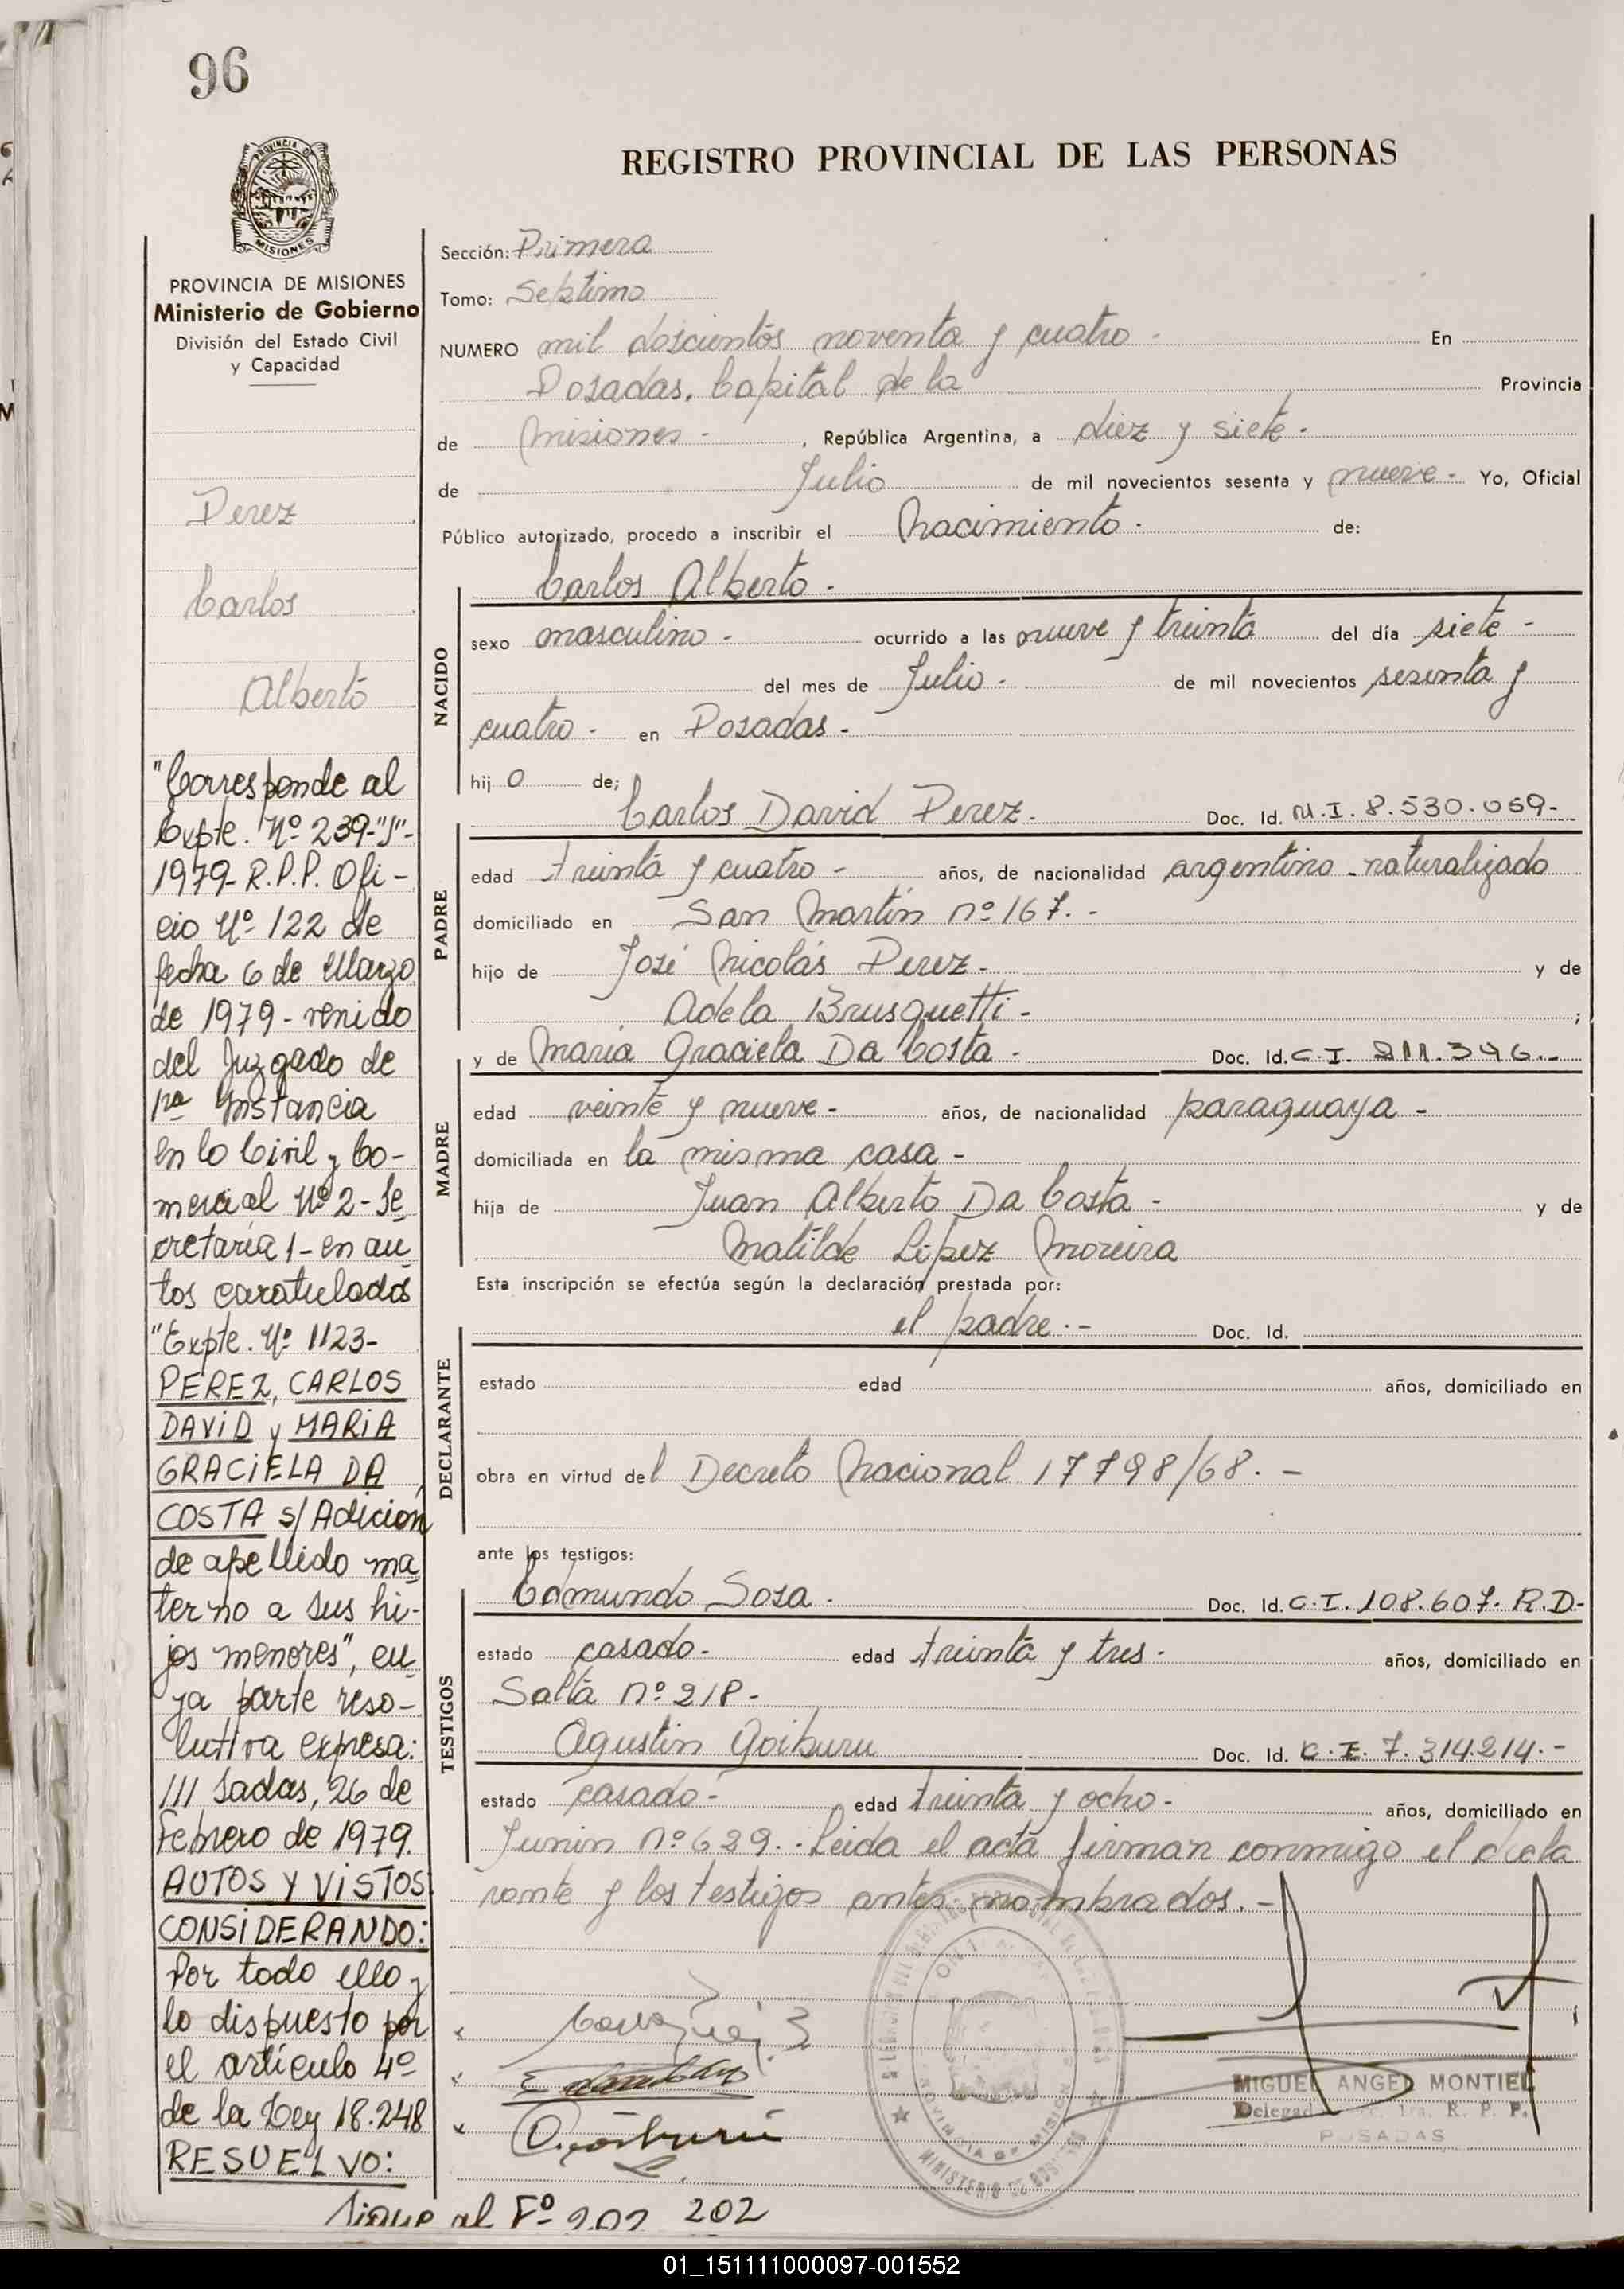 96
PROVINCIA DE
MISIONES
PROVINCIA DE MISIONES
Ministerio de Gobierno
División del Estado Civil
y Capacidad
Perez
Carlos
Alberto
"Corresponde al
Expte. Nº 239-"J"-
1979- R.P.P. Ofi-
cio Nº 122 de
fecha 6 de Marzo
de 1979 - venido
del Juzgado de
1ra Instancia
en lo Civil y Co-
mercial Nº 2 - Se
cretaría 1 - en au
tos caratulados
"Expte. Nº 1123-
PEREZ, CARLOS
DAVID y MARIA
GRACIELA DA
COSTA s/ Adición
de apellido ma
terno a sus hi-
jos menores", cu
ya parte reso-
lutiva expresa:
///sadas, 26 de
Febrero de 1979.
AUTOS Y VISTOS
CONSIDERANDO:
Por todo ello y
lo dispuesto por
el artículo 4º
de la Ley 18.248
RESUELVO:
Sigue al Fº 202 202
REGISTRO PROVINCIAL DE LAS PERSONAS
Sección: Primera
Tomo: Septimo
NUMERO mil doscientos noventa y cuatro - En
Posadas. Capital de la Provincia
de Misiones - , República Argentina, a diez y siete -
de Julio de mil novecientos sesenta y nueve - Yo, Oficial
Público autorizado, procedo a inscribir el Nacimiento - de:
NACIDO
Carlos Alberto -
sexo masculino - ocurrido a las nueve y treinta del día siete -
del mes de Julio - de mil novecientos sesenta y
cuatro - en Posadas -
hijo de;
PADRE
Carlos David Perez - Doc. Id. M.I. 8.530.059-
edad treinta y cuatro - años, de nacionalidad argentino - naturalizado
domiciliado en San Martín nº 167. -
hijo de José Nicolás Perez - y de
Adela Brusquetti - ;
MADRE
y de María Graciela Da Costa - Doc. Id. C.I. 211.346.-
edad veinte y nueve - años, de nacionalidad paraguaya -
domiciliada en la misma casa -
hija de Juan Alberto Da Costa - y de
Matilde López Moreira
Esta inscripción se efectúa según la declaración prestada por:
DECLARANTE
el padre. - Doc. Id.
estado edad años, domiciliado en
obra en virtud del Decreto Nacional 17798/68. -
ante los testigos:
TESTIGOS
Edmundo Sosa - Doc. Id. C.I. 108.607. R.D-
estado casado - edad treinta y tres - años, domiciliado en
Salta nº 218 -
Agustin Goiburu Doc. Id. C.I. 7.314.214. -
estado casado - edad treinta y ocho - años, domiciliado en
Junin nº 629. - Leida el acta firman conmigo el decla
rante y los testigos antes nombrados. -
MIGUEL ANGEL MONTIEL
R. P. P.
POSADAS
01_151111000097-001552